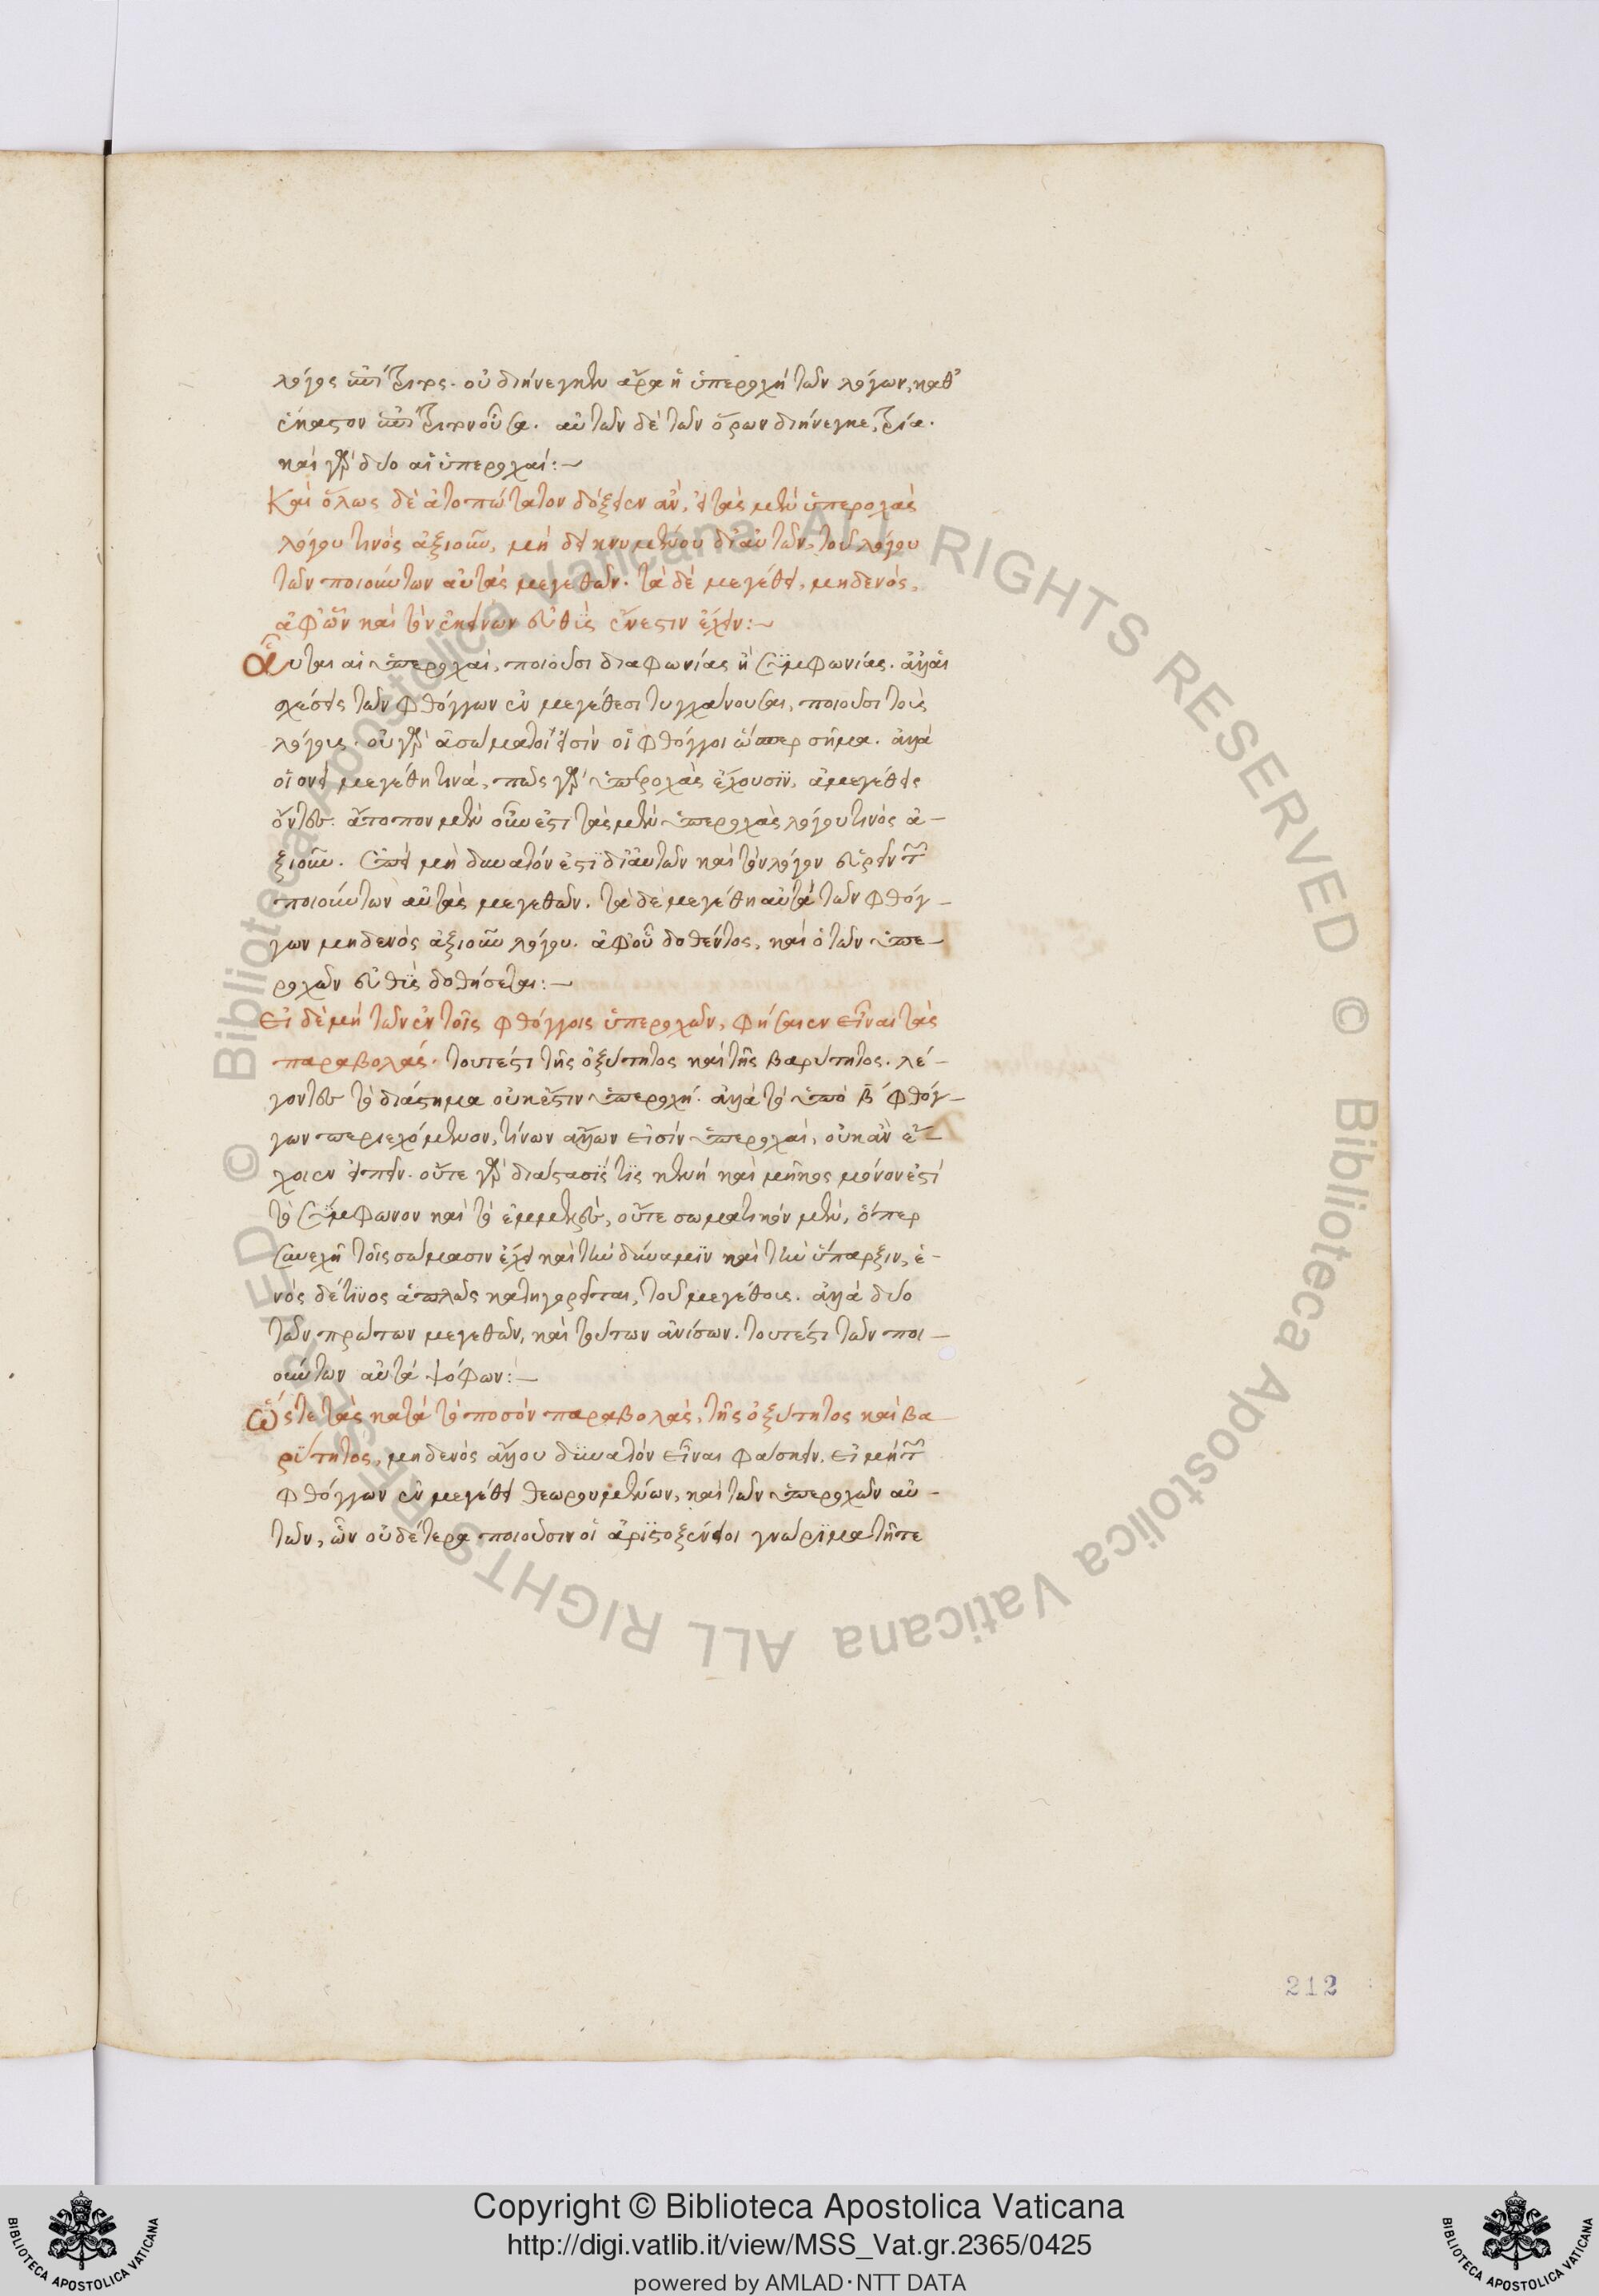 λόγος ἐπίτριτος. οὐ διήνεγκεν ἄρα ἡ ὑπεροχὴ τῶν λόγων, καθ'
ἕκαστον ἐπιτριτον οὖσα. αὐτῶν δὲ τῶν ὅρων διήνεγκε, τρία.
καὶ γὰρ δύο αἱ ὑπεροχαί:~
Καὶ ὅλως δὲ ἀτοπώτατον δόξειεν ἂν, εἰ τὰς μὲν ὑπεροχὰς
λόγου τινὸς ἀξιοῦν, μὴ δεικνυμένου δι' αὐτῶν, τοῦ λόγου
τῶν ποιούντων αὐτὰς μεγεθῶν. τὰ δὲ μεγέθη, μηδενὸς,
ἀφ' ὧν καὶ τὸν ἐκείνων εὐθὺς ἔνεστιν ἔχειν:~
αὗται αἱ ὑπεροχαὶ, ποιοῦσι διαφωνίας ἢ συμφωνίας. ἀλλ' αἱ
σχέσεις τῶν φθόγγων ἐν μεγέθεσι τυγχάνουσαι, ποιοῦσι τοὺς
λόγους. οὐ γὰρ ἀσώματοί εἰσιν οἱ φθόγγοι ὥσπερ σῆμα. ἀλλὰ
οἱονεὶ μεγέθη τινά, πῶς γὰρ ὑπεροχὰς ἔχουσιν, ἀμεγέθεις
ὄντες. ἄτοπον μὲν οὖν ἐστὶ τὰς μὲν ὑπεροχὰς λόγου τινὸς ἀ-
ξιοῦν. ἐπεὶ μὴ δυνατόν ἐστι δι' αὐτῶν καὶ τὸν λόγον εὑρεῖν τῶν
ποιούντων αὐτὰς μεγεθῶν. τὰ δὲ μεγέθη αὐτὰ τῶν φθόγ-
γων μηδενὸς ἀξιοῦν λόγου. ἀφ' οὗ δοθέντος, καὶ ὁ τῶν ὑπε-
ροχῶν εὐθὺς δοθήσεται:~
Εἰ δὲ μὴ τῶν ἐν τοῖς φθόγγοις ὑπεροχῶν, φήσαιεν εἶναι τὰς
παραβολάς. τουτέστι τῆς ὀξύτητος καὶ τῆς βαρύτητος. λέ-
γοντες τὸ διάστημα οὐκ ἔστιν ὑπεροχή. ἀλλὰ τὸ ὑπὸ β φθόγ-
γων περιεχόμενον, τίνων ἄλλων εἰσὶν ὑπεροχαὶ, οὐκ ἂν ἔ-
χοιεν εἰπεῖν. οὔτε γὰρ διάστασίς τις κενὴ καὶ μῆκος μόνον ἐστὶ
τὸ σύμφωνον καὶ τὸ ἐμμελὲς, οὔτε σωματικὸν μὲν, ὅπερ
συνεχῆ τοῖς σώμασιν ἔχει καὶ τὴν δύναμιν καὶ τὴν ὕπαρξιν, ἑ-
νὸς δέ τινος ἁπλῶς κατηγορεῖται, τοῦ μεγέθους. ἀλλὰ δύο
τῶν πρώτων μεγεθῶν, καὶ τούτων ἀνίσων. τουτέστι τῶν ποι-
ούντων αὐτὰ ψόφων:~
ὥστε τὰς κατὰ τὸ ποσὸν παραβολὰς, τῆς ὀξύτητος καὶ βα
ρύτητος, μηδενὸς ἄλλου δυνατὸν εἶναι φάσκειν. εἰ μὴ τῶν
φθόγγων ἐν μεγέθει θεωρουμένων, καὶ τῶν ὑπεροχῶν αὐ-
τῶν, ὧν οὐδέτερα ποιοῦσιν οἱ ἀριστοξένειοι γνώριμα τῆ τε
212
Copyright © Biblioteca Apostolica Vaticana
http://digi.vatlib.it/view/MSS_Vat.gr.2365/0425
powered by AMLAD·NTT DATA